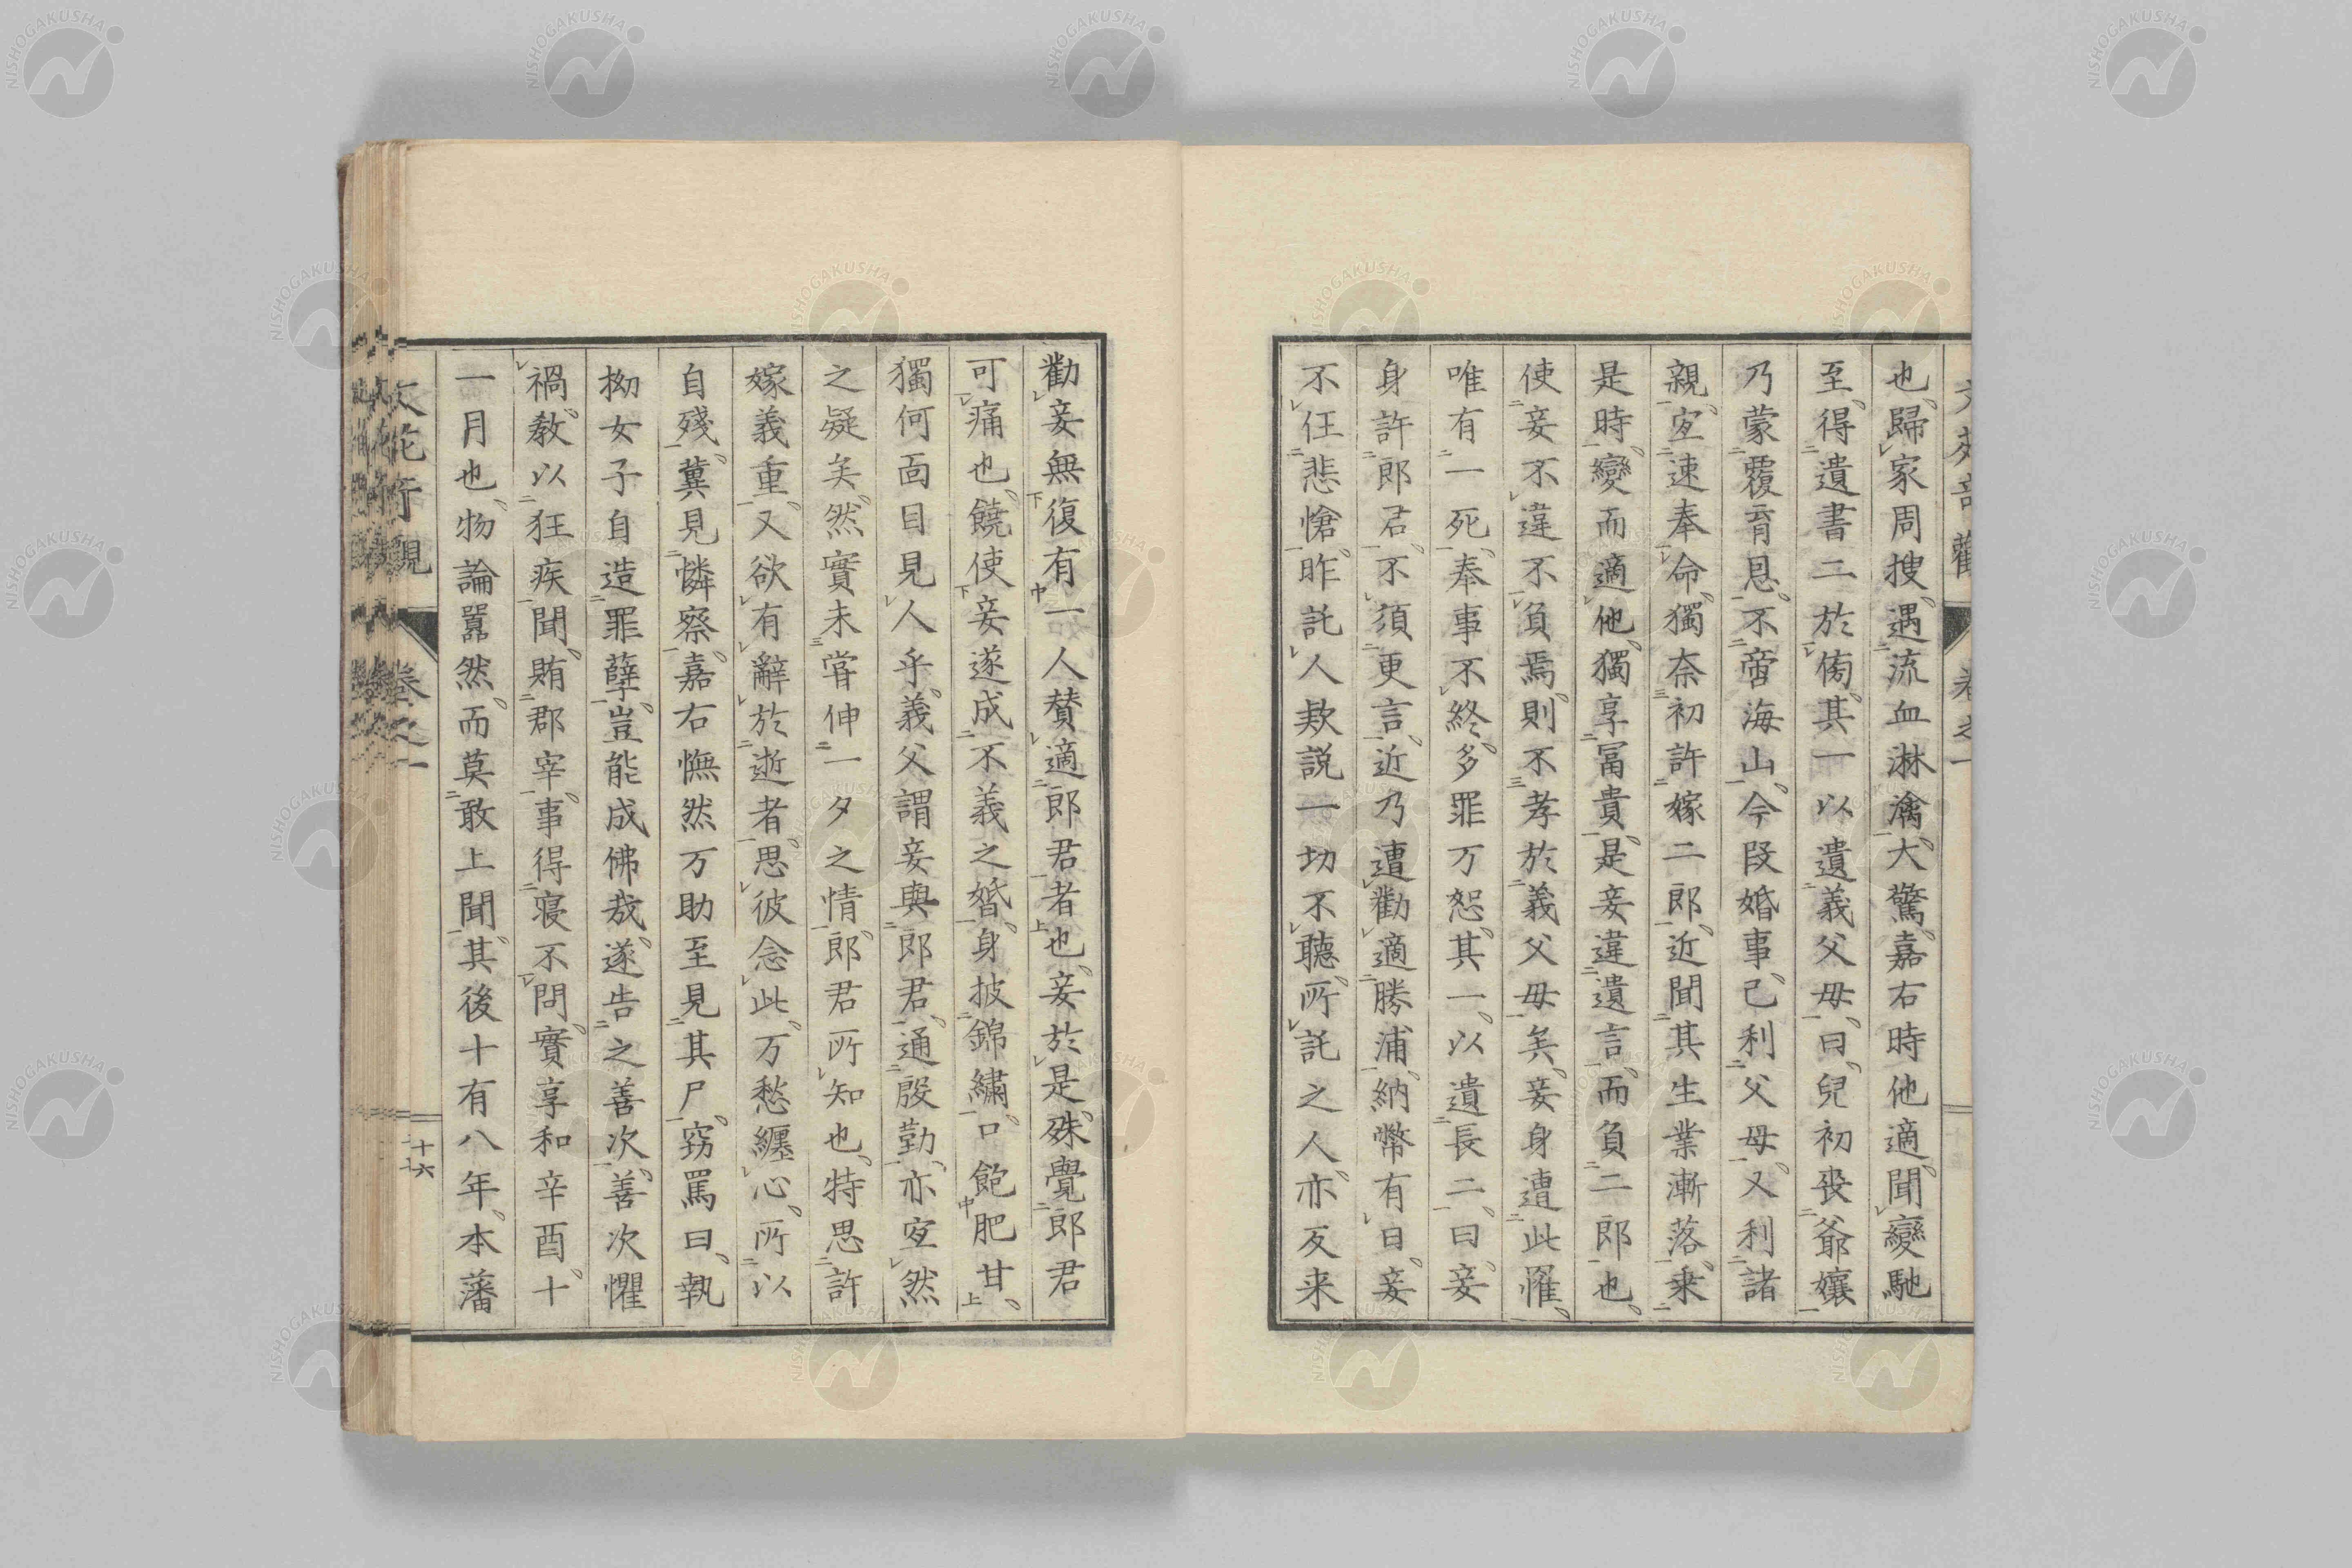 也歸家周搜遇流血淋漓大驚嘉右時他適聞變馳
至得遺書二於傍其一以遺義父母曰兒初喪爺孃
乃蒙覆育恩不啻海山今段婚事己利父母又利諸
親宜速奉命獨奈初許嫁二郎近聞其生業漸落乘
是時變而適他獨享冨貴是妾違遺言而負二郎也
使妾不違不負焉則不孝於義父母矣妾身遭此罹
唯有一死奉事不終多罪万恕其一以遺長二曰妾
身許郎君不須更言近乃遭勸適勝浦納幣有日妾
不任悲愴昨託人欵説一切不聽所託之人亦反来
勸妾無復有一人賛適郎君者也妾於是殊覺郎君
可痛也饒使妾遂成不義之婚身披錦繡口飽肥甘
獨何面目見人乎義父謂妾與郎君通殷勤亦宜然
之疑矣然實未嘗伸一夕之情郎君所知也特思許
嫁義重又欲有辭於逝者思彼念此万愁纏心所以
自殘冀見憐察嘉右憮然万助至見其尸窃罵曰執
拗女子自造罪孽豈能成佛哉遂告之善次善次懼
禍教以狂疾聞賄郡宰事得寝不問實享和辛酉十
一月也物論囂然而莫敢上聞其後十有八年本藩
卷之一
十六
NISHOGAKUSHA